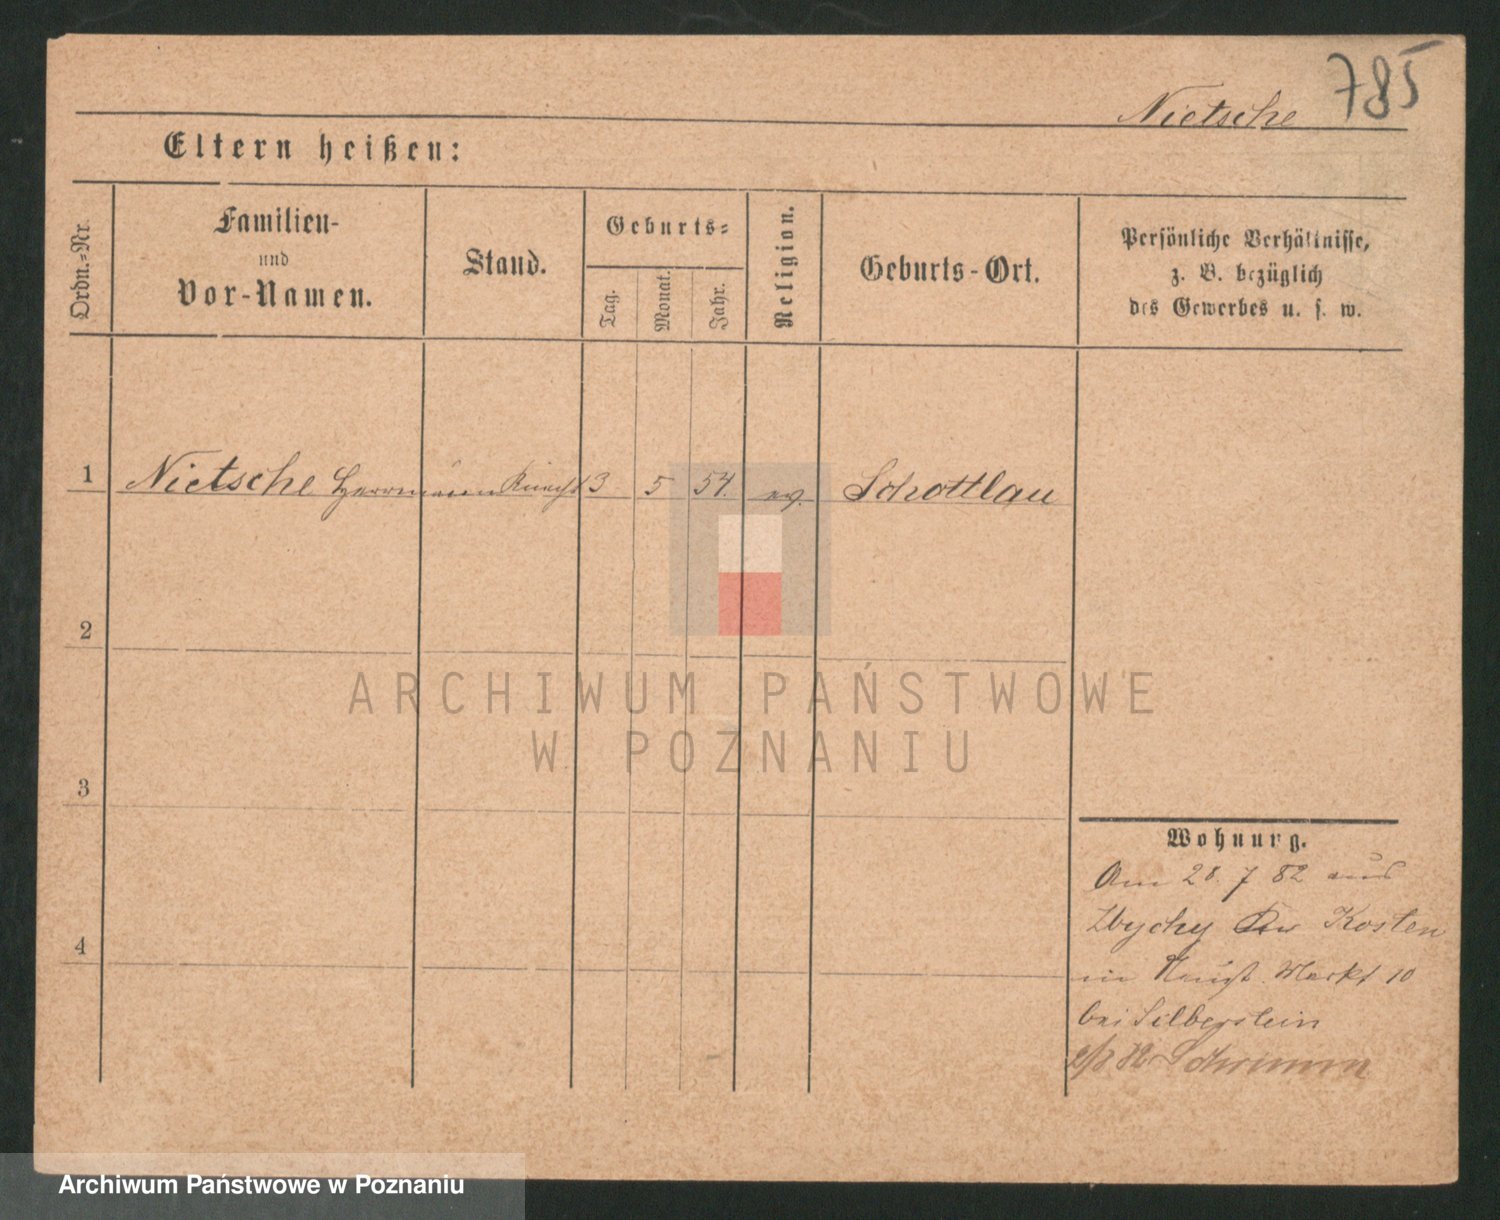 785
Nietsche
Eltern heißen:
Ordn.=Nr.
Familien-
und
Vor-Namen.
Stand.
Geburts=
Tag.
Monat.
Jahr.
Religion.
Geburts-Ort.
Persönliche Verhältnisse,
z. B. bezüglich
des Gewerbes u. s. w.
1 Nietsche Herrmann Knecht 3 5 54. ev. Schottlau
2
3
4
Wohnung.
Am 28. 7 82 aus
Zbychy Kosten
Markt 10
bei Silberstein
82 Schrimm
ARCHIWUM PAŃSTWOWE
W POZNANIU
Archiwum Państwowe w Poznaniu